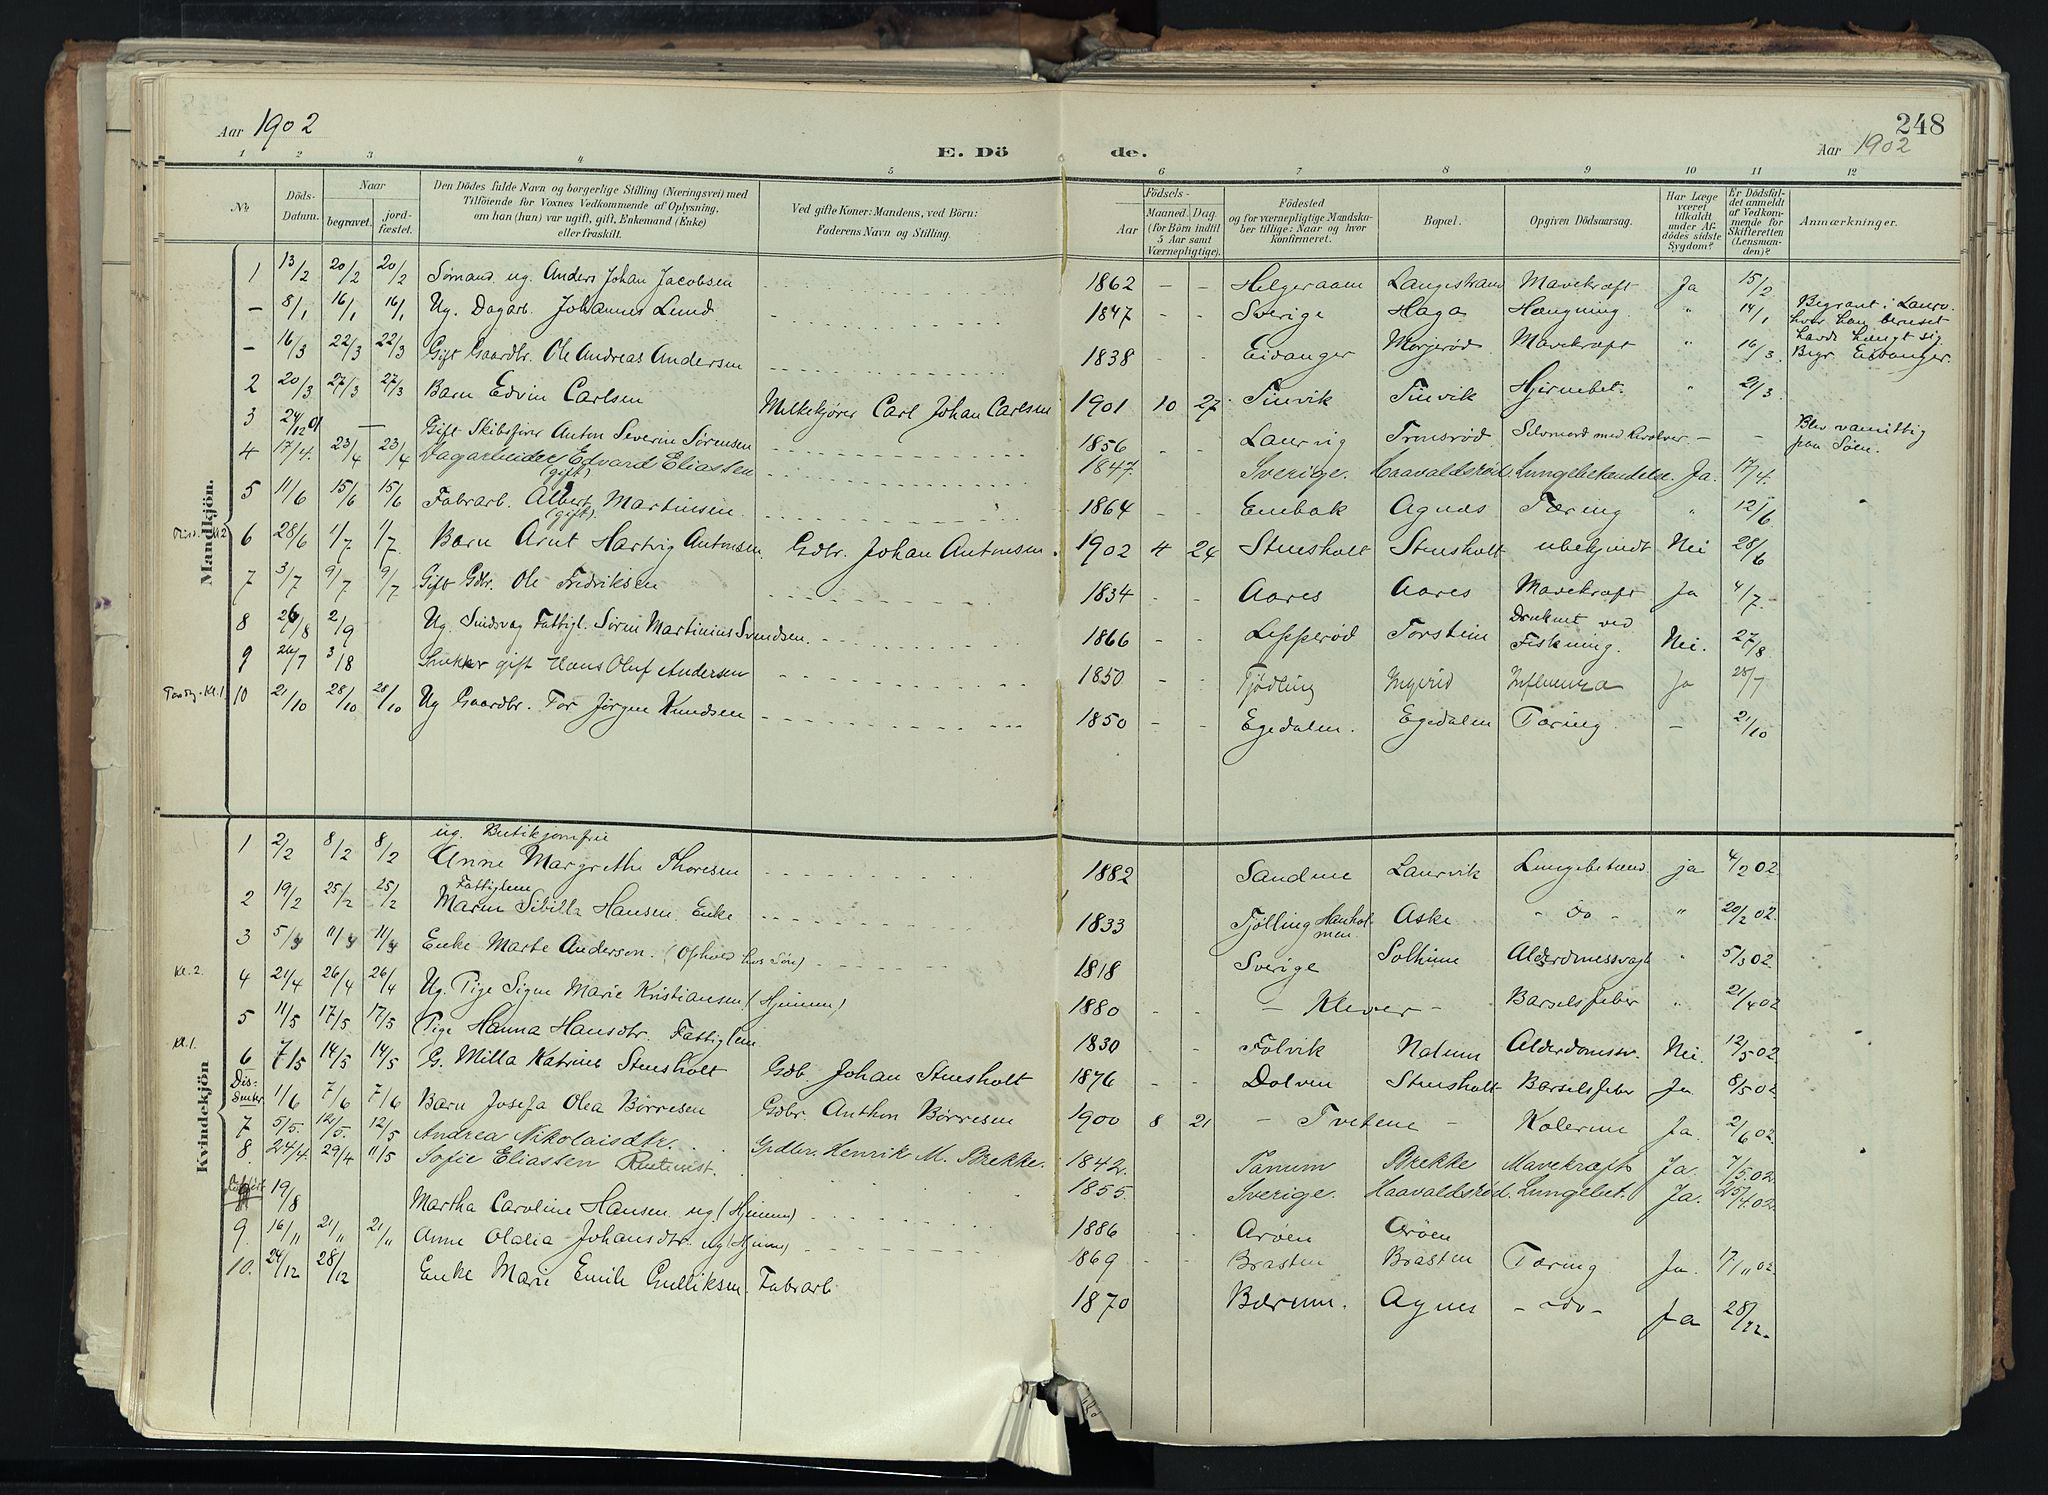 248
Aar 1902
E. Döde.
Aar 1902
1 2 3 4 5 6 7 8 9 10 11 12
No.
Döds-Datum.
Naar
begravet.
jord-fæstet.
Den Dödes fulde Navn og borgerlige Stilling (Næringsvei) med
Tilföiende for Voxnes Vedkommende af Oplysning,
om han (hun) var ugift, gift, Enkemand (Enke)
eller fraskilt.
Ved gifte Koner: Mandens, ved Börn:
Faderens Navn og Stilling.
Födsels-
Aar
Maaned. Dag.
(for Börn indtil
5 Aar samt
Værnepligtige).
Födested
og for værnepligtige Mandska-
ber tillige: Naar og hvor
konfirmeret.
Bopæl.
Opgiven Dödsaarsag.
Har Læge
været
tilkaldt
under Af-
dödes sidste
Sygdom?
Er Dödsfal-
det anmeldt
af Vedkom-
mende for
Skifteretten
(Lensman-
den)?
Anmærkninger.
Mandkjön.
1 13/2 20/2 20/2 Sømand ug. Anders Johan Jacobsen 1862 - - Helgeraaen Langestrand Mavekræft Ja 15/2
- 8/1 16/1 16/1 Ug. Dagarb. Johannes Lund 1847 - - Sverige Haga Hængning " 14/1 Begravt i Laurv. hvor han beruset havde hængt sig.
- 16/3 22/3 22/3 Gift Gaardbr. Ole Andreas Andersen 1838 - - Eidanger Morjerød Mavekræft " 16/3 Begr. Eidanger.
2 20/3 27/3 27/3 Barn Edvin Carlsen Melkekjører Carl Johan Carlsen 1901 10 27 Tinvik Tinvik Hjernebet. " 21/3
3 24/12 01 — Gift Skibsfører Anton Severin Sørensen 1856 - - Laurvig Selvmord med Revolver - - Blev vanvittig paa Søen.
4 17/4. 23/4 23/4 Dagarbeider Edvard Eliassen (gift) 1847. Sverige. Haavaldsrød. Lungebetændelse. Ja. 17/4.
5 11/6 15/6 15/6 Fabrarb. Albert Martinsen (gift). 1864 - - Embak Agnes Tæring " 12/6
Kl 2 6 28/6 1/7 1/7. Barn Arnt Hartvig Antonsen Gdbr. Johan Antonsen. 1902 4 24 Stensholt Stensholt ubekjendt Nei 28/6
7 3/7 9/7 9/7 Gift Gdbr. Ole Fredriksen 1834 - - Aares Aares Mavekræft Ja 4/7.
8 26/8 2/9 Ug. Sindsvag Fattigl. Søren Martinius Svendsen. 1866 - - Lepperød Torstein Druknet ved Fiskning. Nei. 27/8
9 26/7 3/8 gift Hans Oluf Andersen 1850 - - Tjødling Influenza Ja 28/7
Kl.1. 10 21/10 28/10 28/10 Ug Gaardbr. Tor Jörgen Knudsen 1850 - - Egedalen. Egedalen Tæring - 21/10
Kvindekjön
1 2/2 8/2 8/2 ug. Butikjomfru
Anne Margrethe Thoresen 1882 Sandene Laurvik Lungebetænd ja 4/2 02
2 19/2 25/2 25/2 Fattiglem
Maren Sibilla Hansen. Enke 1833 Tjølling Hauholmen Aske - do - " 20/2 02
3 5/3 11/3 11/3 Enke Marte Anderson. (Ophold hos Søn) 1818 Sverige Solhime Alderdomssvagh " 5/3 02
Kl. 2. 4 21/4 26/4 26/4 Ug. Pige Signe Marie Kristiansen (Hjemmev) 1880 - - - Klever - Barselsfeber " 21/4 02
5 11/5 17/5 17/5 Pige Hanna Hansdtr. Fattiglem 1830 - - Folvik Nalum Alderdomssv. Nei. 12/5 02
Kl.1. 6 7/5 14/5 14/5 G. Milla Katrine Stensholt Gdb. Johan Stensholt 1876 - - Dolven Stensholt Barselsfeber Ja 8/5 02
Dissenter 1/6 7/6 7/6 Barn Josefa Olea Børresen Gdbr Anthon Børresen 1900 8 21 - Tvetene - Kolerine Ja. 2/6 02.
7 5/5. 12/5. 12/5 Andrea Nikolaisdtr. Grdbr. Henrik M. Brekke. 1842. Tanum Brekke Mavekræft Ja. 7/5.02.
8. 24/4. 29/4 11/5 Sofie Eliassen 1855. Sverige. Haavaldsrød. Lungebet. Ja. 25/4.02.
19/8 Martha Caroline Hansen ug (Hjemmev) 1886 - - Arøen Arøen
9. 16/11 21/11 21/11 Anne Olalia Johansdtr. ug (Hjemmev) 1869 - - Brasten Brasten Tæring Ja. 17/11 02.
10. 24/12 28/12 Enke Marie Emilie Gulliksen Fabrarb 1870 Bærum. Agnes - do - Ja 28/12-